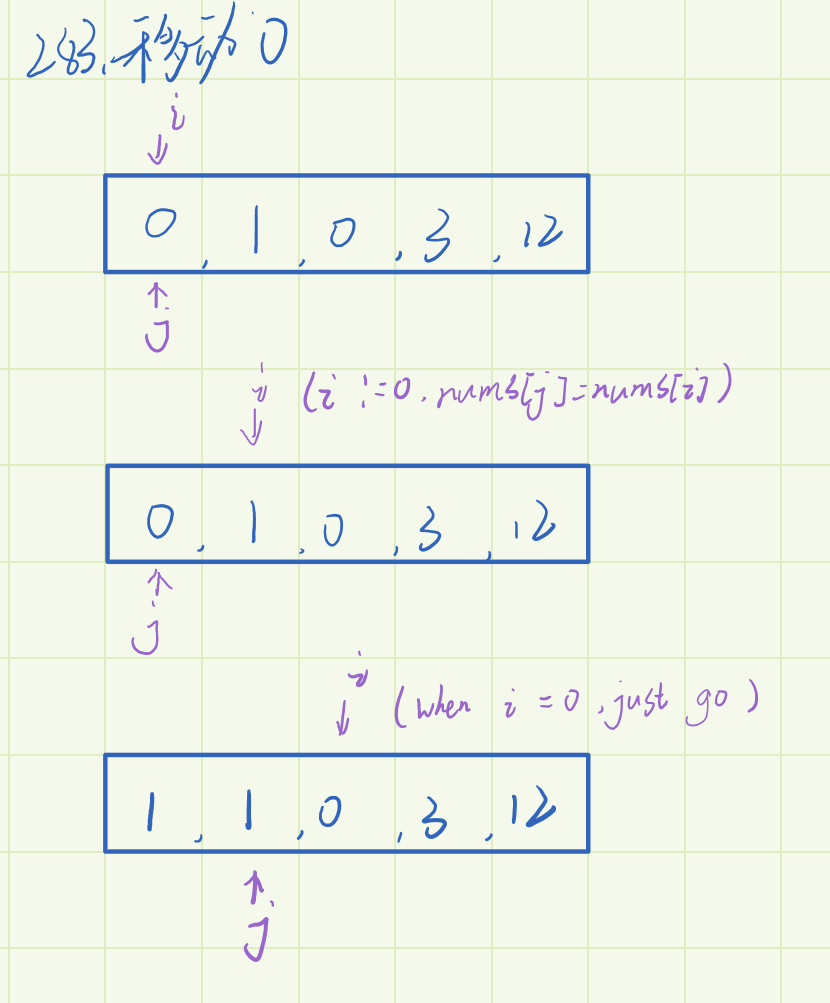 283.移动0
i
0,1,0,3,12
j
i (i !=0, nums[j]=nums[i])
0,1,0,3,12
j
i (when i =0,just go)
1,1,0,3,12
j